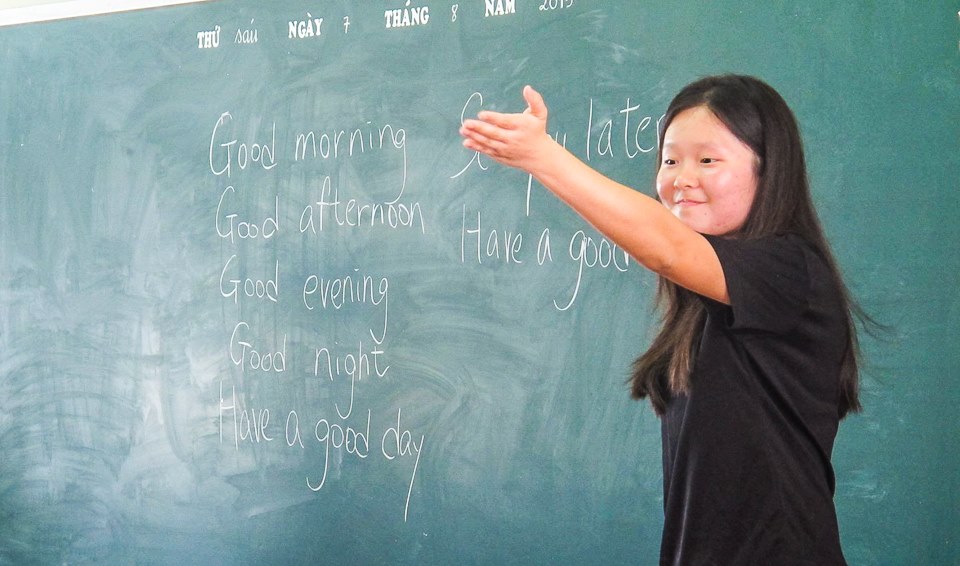 THỨ sáu NGÀY 7 THÁNG 8 NĂM 2015
Good morning
Good afternoon
Good evening
Good night
Have a good day
later
Have a good